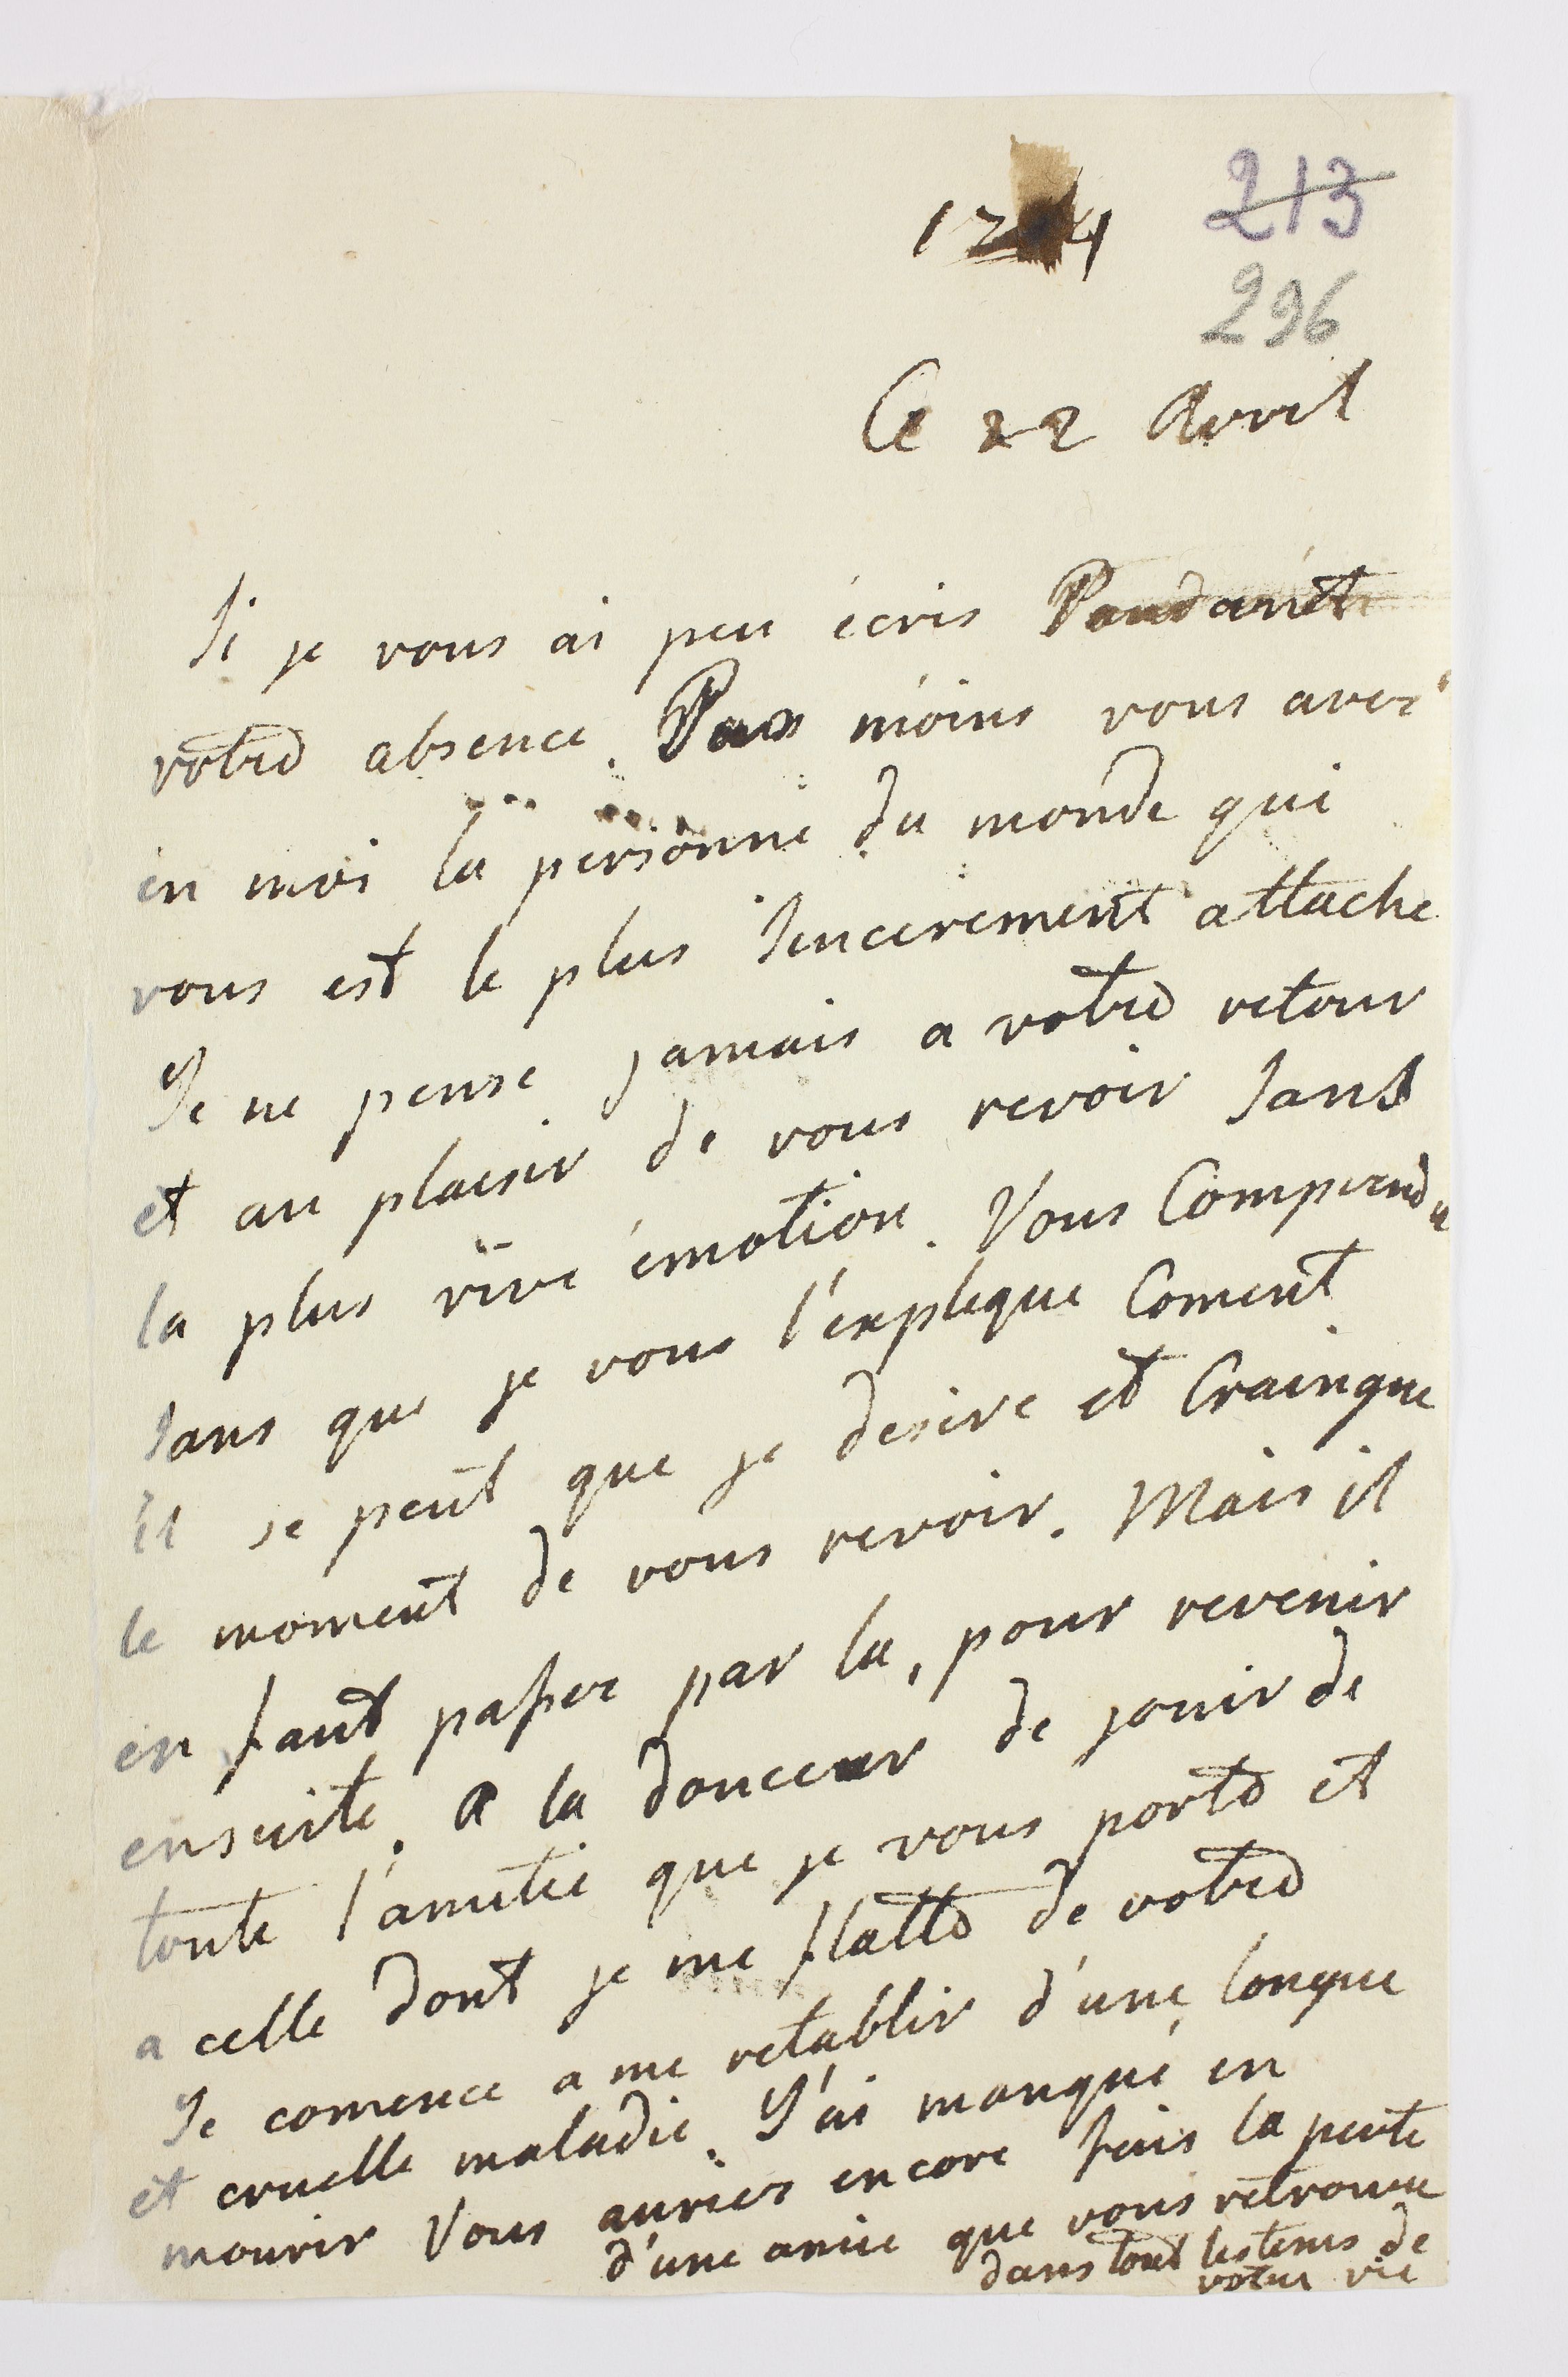 213
296
Ce 22 Avril
Si je vous ai peu écris Pendant
votre absence. Pas moins vous avez
en moi la personne du monde qui
vous est le plus sincerement attaché
Je ne pense jamais a votre retour
et au plaisir de vous revoir sans
la plus vive émotion. Vous Comprendre
sans que je vous l'explique Coment
il se peut que je desire et Crainque
le moment de vous revoir. Mais il
en faut passer par la, pour revenir
ensuite. A la douceur de jouir de
toute l'amitié que je vous porte et
a celle dont je me flatte de votre
Je comence a me retablir d'une longue
et cruelle maladie. J'ai manqué en
mourir Vous auriez encore fais la perte
d'une amie que vous retrouve
dans tout les tems de
votre vie